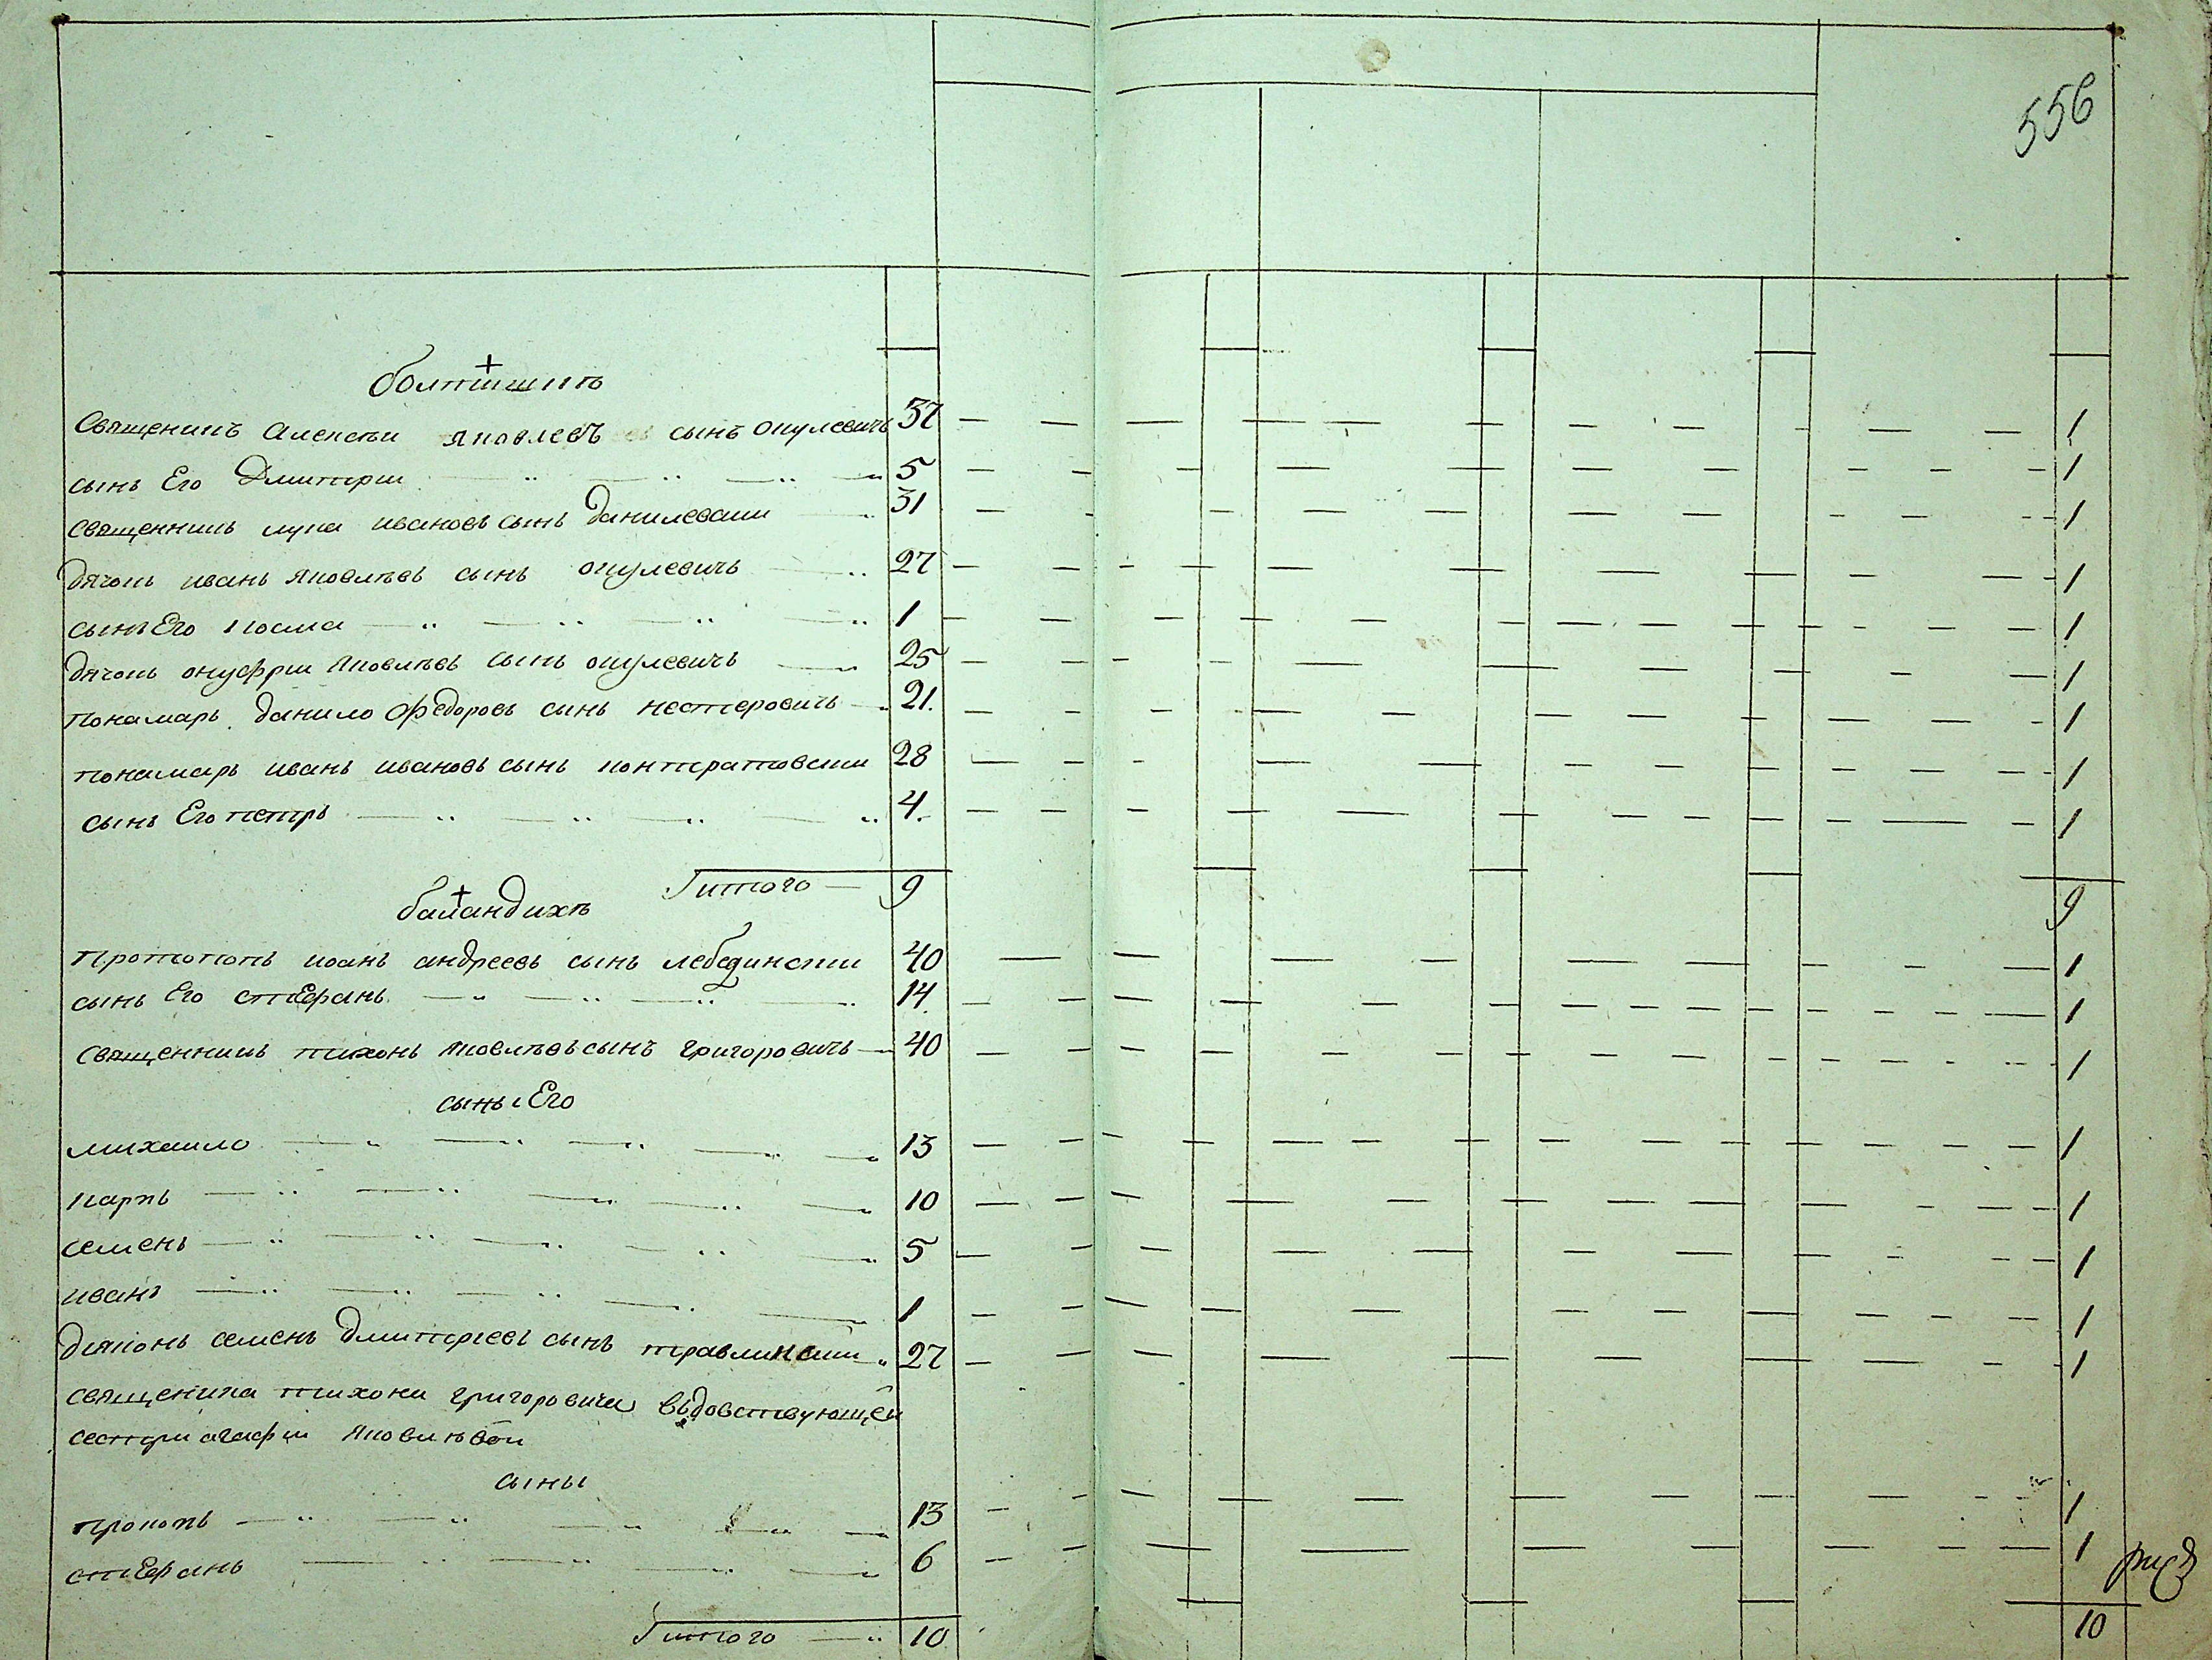 556
болтишит
Священикъ Алексѣи яковлевъ сынъ окулевичъ 37 1
сынъ Его Дмитрии 5 1
священникъ лука ивановъ сынъ Данилевскии 31 1
дячокъ иванъ яковлѣвъ сынъ окулевичъ 27 1
сынъ Его косма 1 1
дячокъ онуфрии яковлѣвъ сынъ окулевичъ 25 1
понамарь данило Федоровъ сынъ нестеровичъ 21. 1
понамарь иванъ ивановъ сынъ контратовскии 28 1
сынъ Его петръ 4. 1
итого 9 9
баландихъ
протопопъ иоанъ андреевъ сынъ лебединскии 40 1
сынъ Его стЕфанъ 14. 1
священникъ тихонъ яковлѣвъ сынъ григоровичъ 40 1
сыны Его
михаило 13 1
карпъ 10 1
семенъ 5 1
иванъ 1 1
дияконъ семенъ дмитриевъ сынъ травлинскии 27 1
священика тихона григоровича въдовствующеи
сестри агафии яковлѣвои
сыны
прокопъ 13 1
стЕфанъ 6 1
итого 10 10